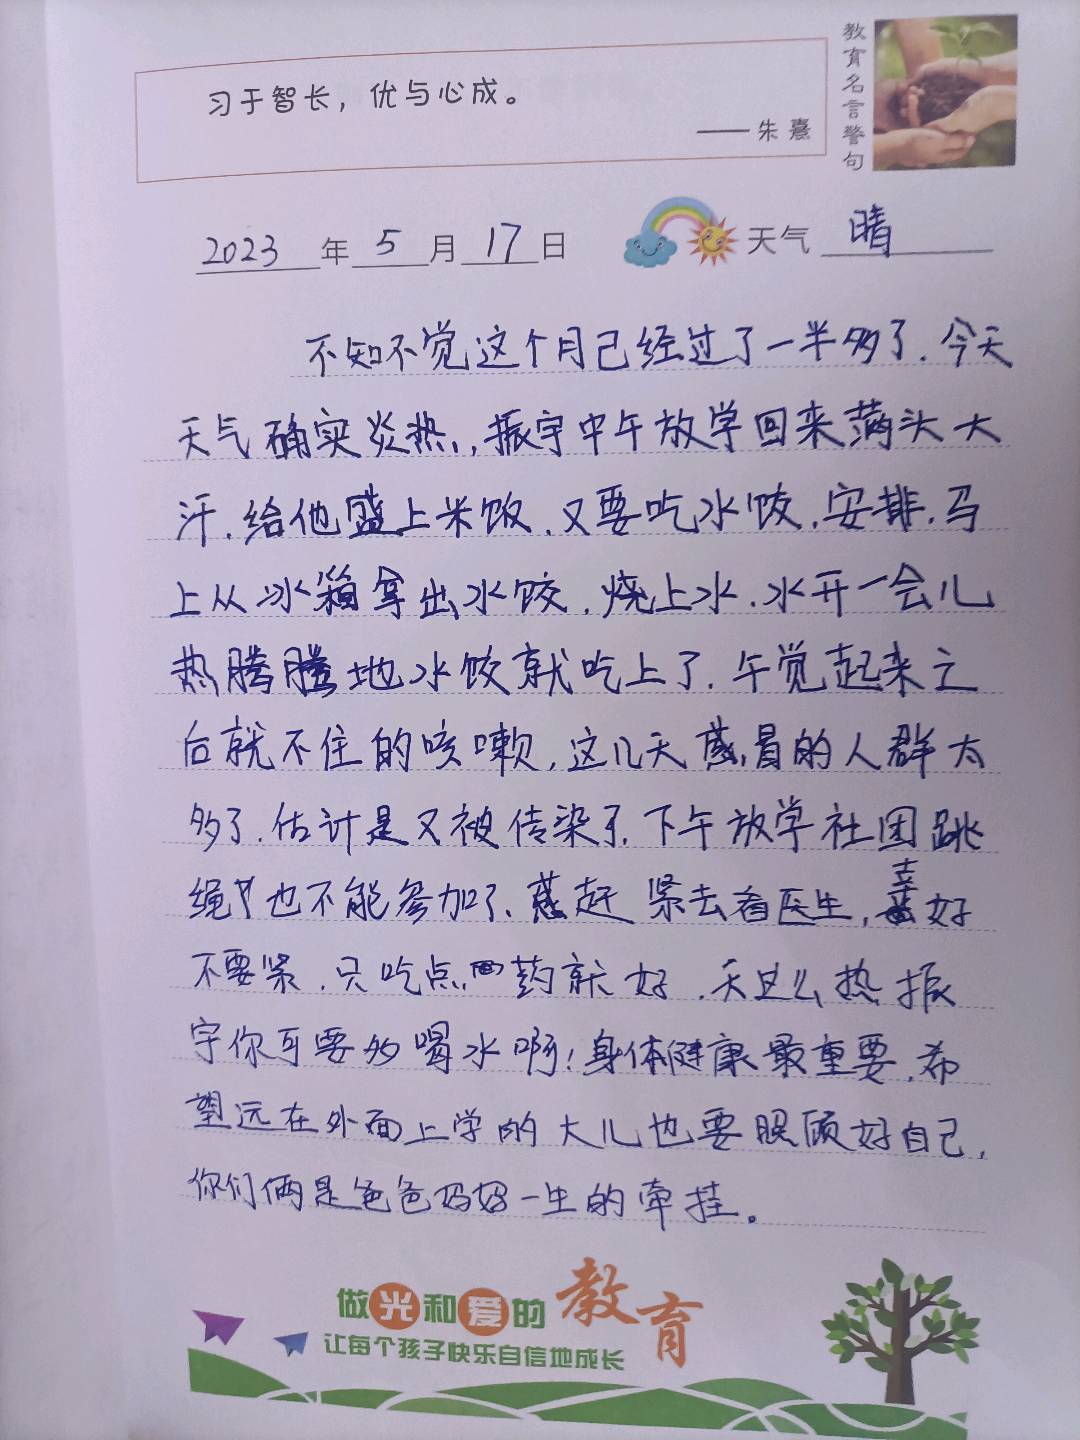 习于智长，优与心成。
——朱熹
教育名言警句
2023年5月17日 天气 晴
不知不觉这个月已经过了一半多了.今天
天气确实炎热,振宇中午放学回来满头大
汗.给他盛上米饭.又要吃水饺.安排.马
上从冰箱拿出水饺.烧上水.水开一会儿
热腾腾地水饺就吃上了.午觉起来之
后就不住的咳嗽,这几天感冒的人群太
多了.估计是又被传染了.下午放学社团跳
绳也不能参加了、赶紧去看医生,幸好
不要紧.只吃点药就好.天这么热振
宇你可要多喝水啊!身体健康最重要.希
望远在外面上学的大儿也要照顾好自己,
你们俩是爸爸妈妈一生的牵挂。
做光和爱的教育
让每个孩子快乐自信地成长